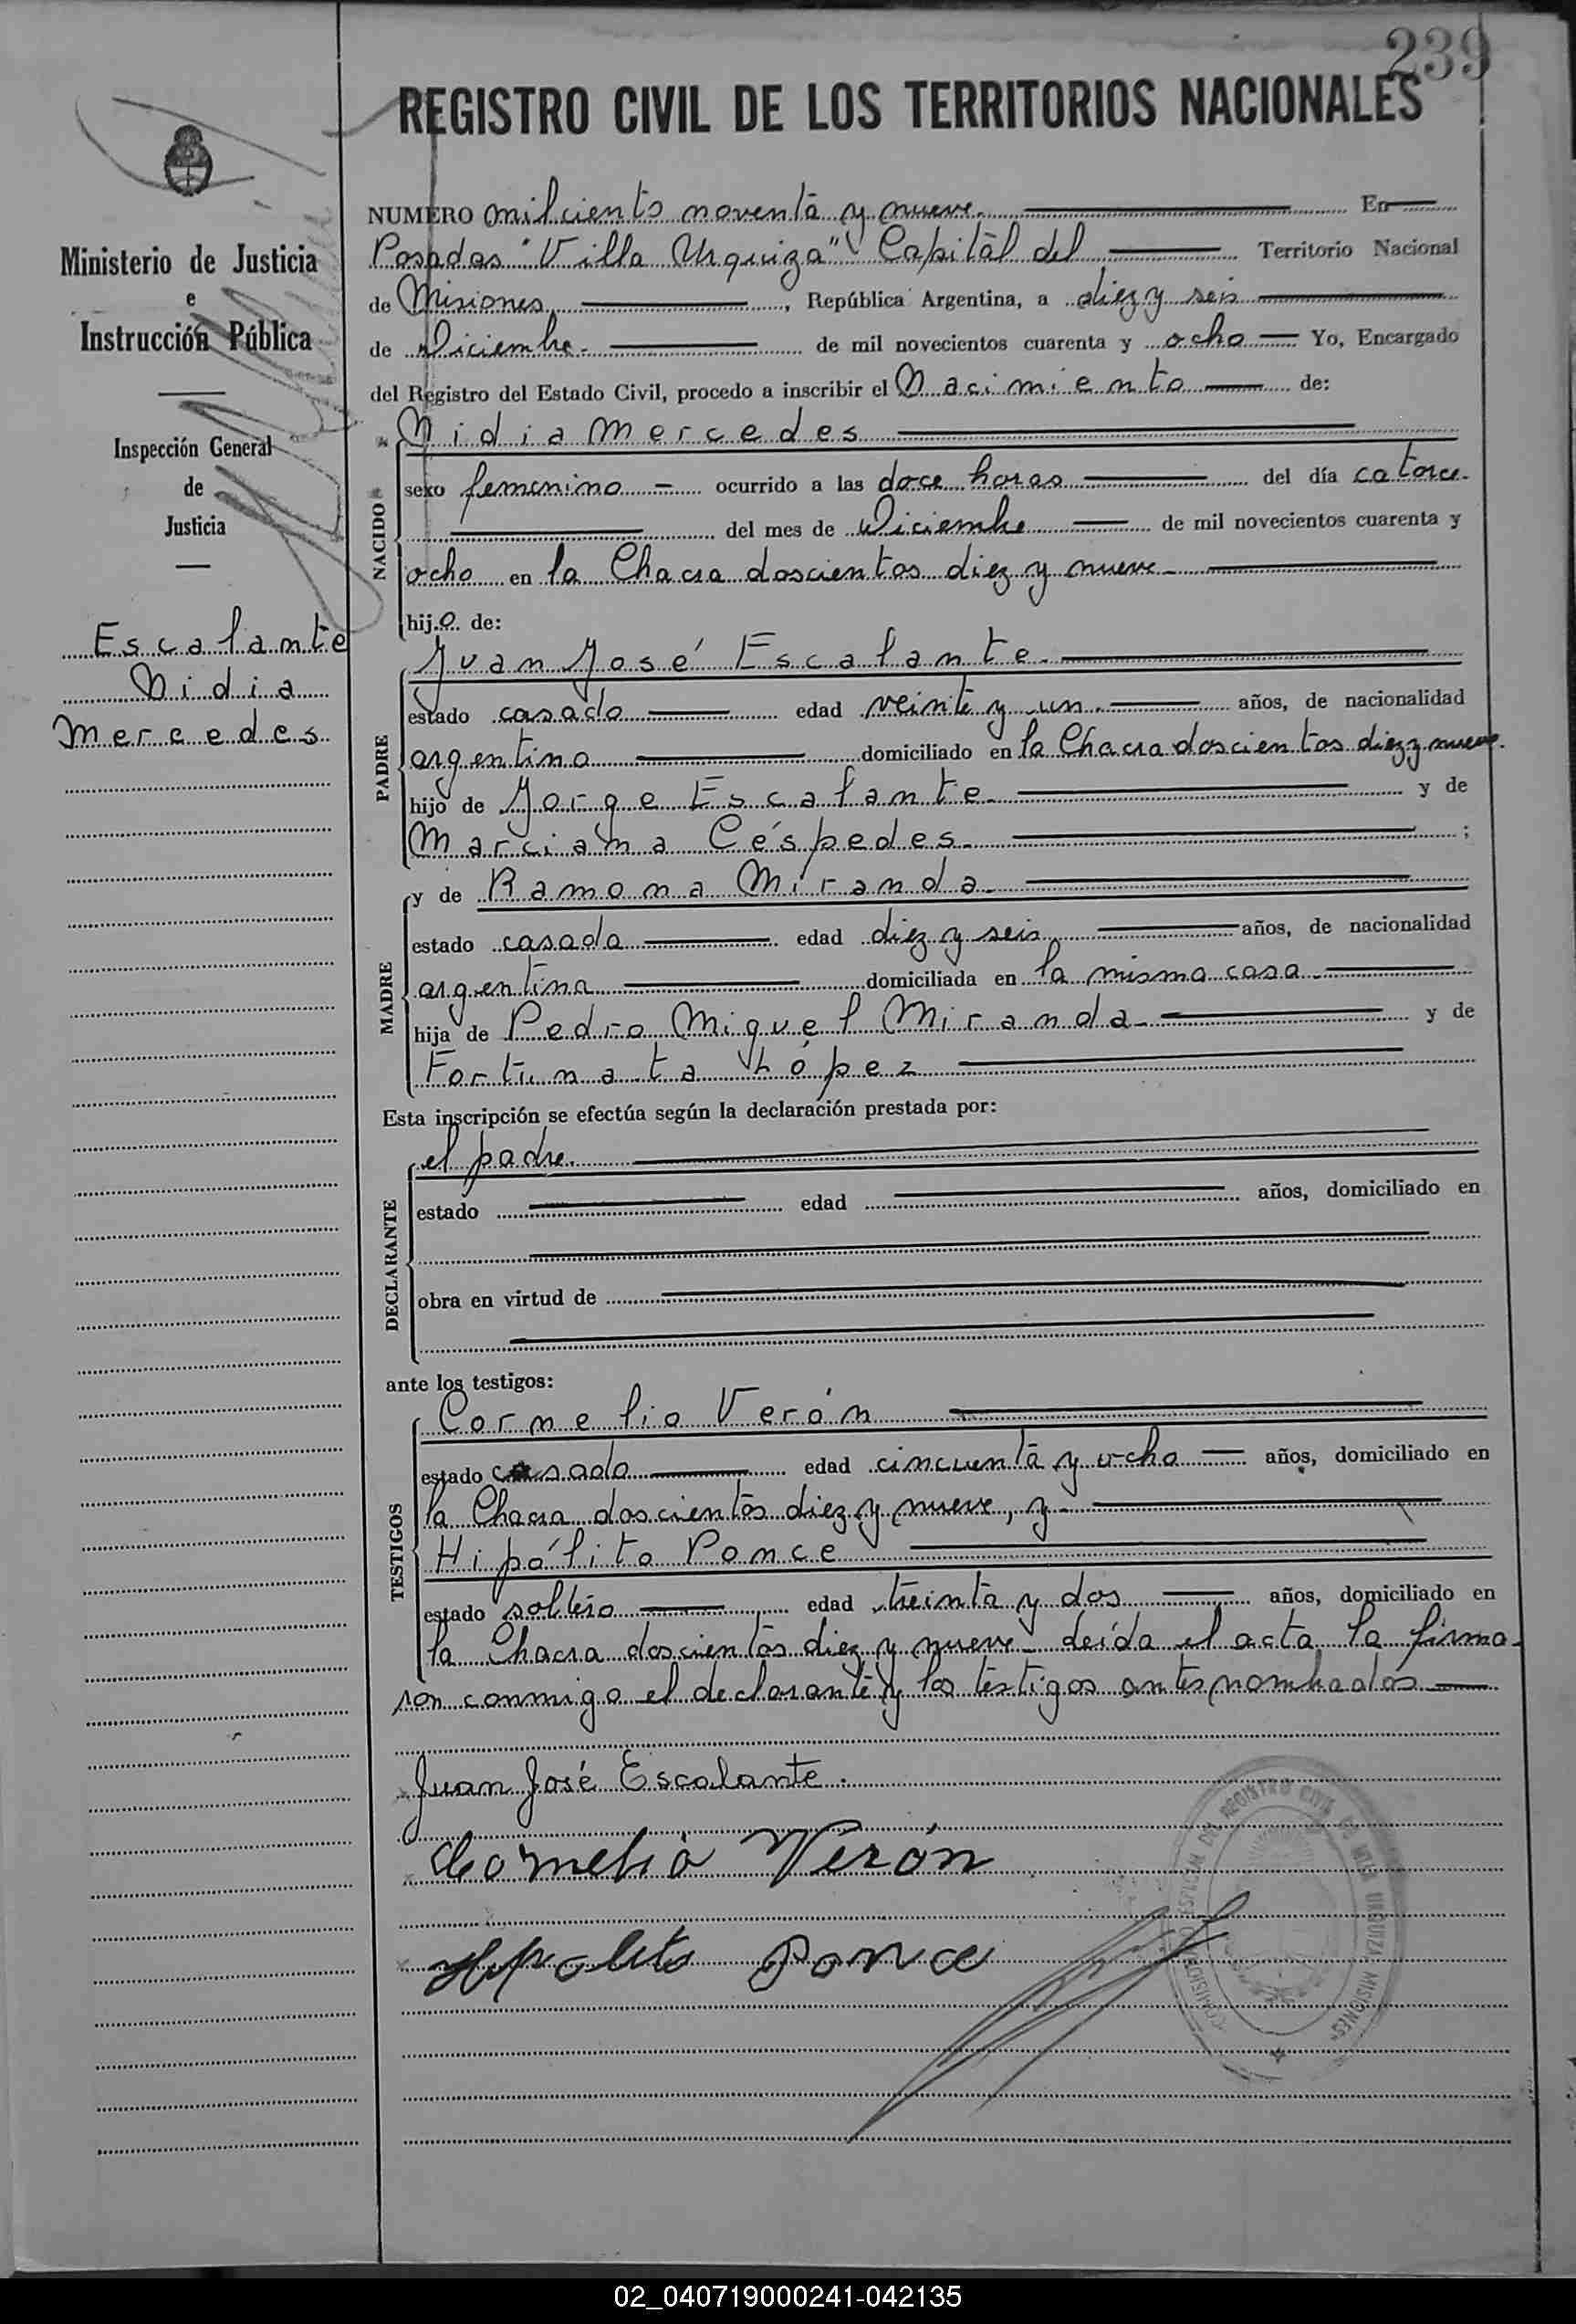 239
REGISTRO CIVIL DE LOS TERRITORIOS NACIONALES
Ministerio de Justicia
e
Instrucción Pública
Inspección General
de
Justicia
Escalante
Nidia
Mercedes
NUMERO mil ciento noventa y nueve. En
Posadas "Villa Urquiza" Capital del Territorio Nacional
de Misiones, República Argentina, a diez y seis
de Diciembre de mil novecientos cuarenta y ocho Yo, Encargado
del Registro del Estado Civil, procedo a inscribir el Nacimiento de:
NACIDO
Nidia Mercedes
sexo femenino ocurrido a las doce horas del día catorce
del mes de Diciembre de mil novecientos cuarenta y
ocho en la Chacra doscientos diez y nueve
hijo de:
PADRE
Juan José Escalante
estado casado edad veinte y un años, de nacionalidad
argentino domiciliado en la Chacra doscientos diez y nueve.
hijo de Jorge Escalante y de
Marciana Céspedes ;
MADRE
y de Ramona Miranda
estado casada edad diez y seis años, de nacionalidad
argentina domiciliada en la misma casa
hija de Pedro Miguel Miranda y de
Fortunata López
Esta inscripción se efectúa según la declaración prestada por:
DECLARANTE
el padre.
estado edad años, domiciliado en
obra en virtud de
ante los testigos:
TESTIGOS
Cornelio Verón
estado casado edad cincuenta y ocho años, domiciliado en
la Chacra doscientos diez y nueve, y
Hipólito Ponce
estado soltero edad treinta y dos años, domiciliado en
la Chacra doscientos diez y nueve Leída el acta la firma-
ron conmigo el declarante y los testigos antes nombrados
Juan José Escalante.
Cornelio Verón
Hipolito Ponce
COMISIONADO ESPECIAL DEL REGISTRO CIVIL DE VILLA URQUIZA MISIONES
02_040719000241-042135